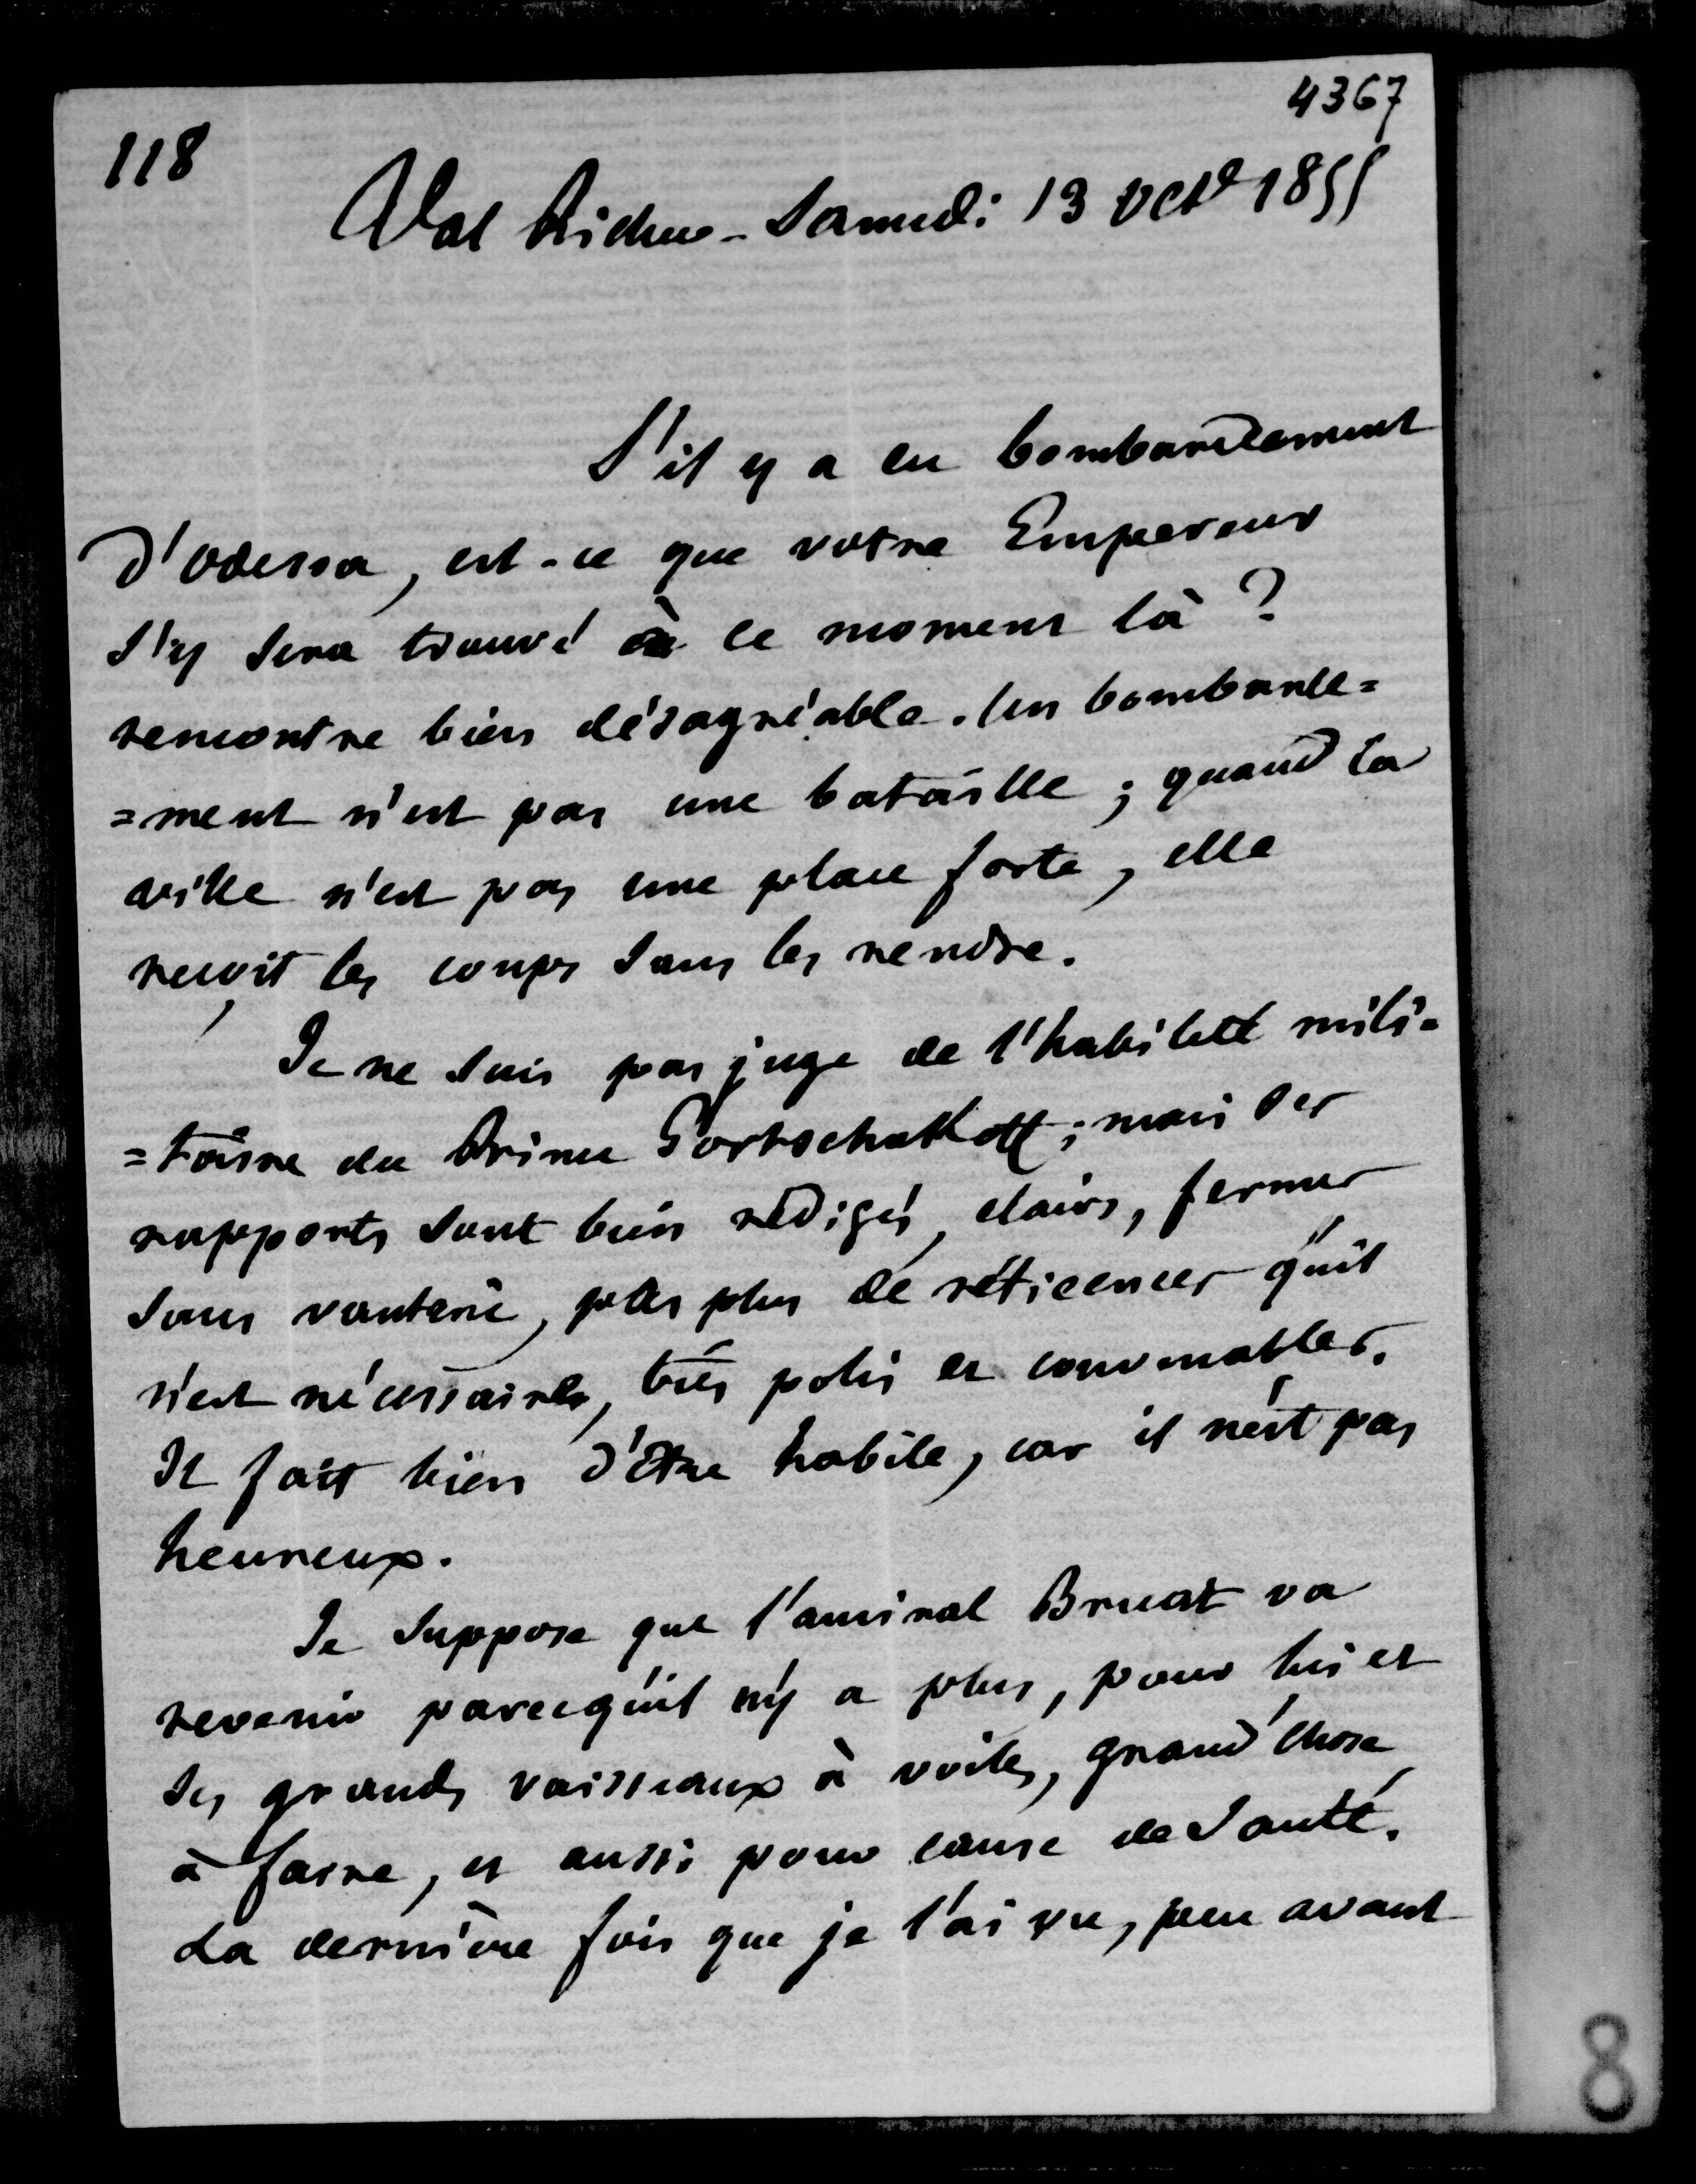 4367
118
Val Richer - Samedi 13 Octe 1855
S'il y a eu bombardement
d'Odessa, est-ce que votre Empereur
s'y sera trouvé à ce moment là ?
rencontre bien désagréable. Un bombarde=
=ment n'est pas une bataille ; quand la
ville n'est pas une place forte, elle
reçoit les coups sans les rendre.
Je ne suis pas juge de l'habileté mili=
=taire du Prince Gortschakoff ; mais ses
rapports sont bien rédigés, clairs, fermes
sans vanterie, pas plus de réticences qu'il
n'est nécessaire, très polis et convenables.
Il fait bien d'être habile, car il n'est pas
heureux.
Je suppose que l'amiral Bruat va
revenir parcequ'il n'y a plus, pour lui et
ses grands vaisseaux à voiles, grand'chose
à faire, et aussi pour cause de santé.
La dernière fois que je l'ai vu, peu avant
8